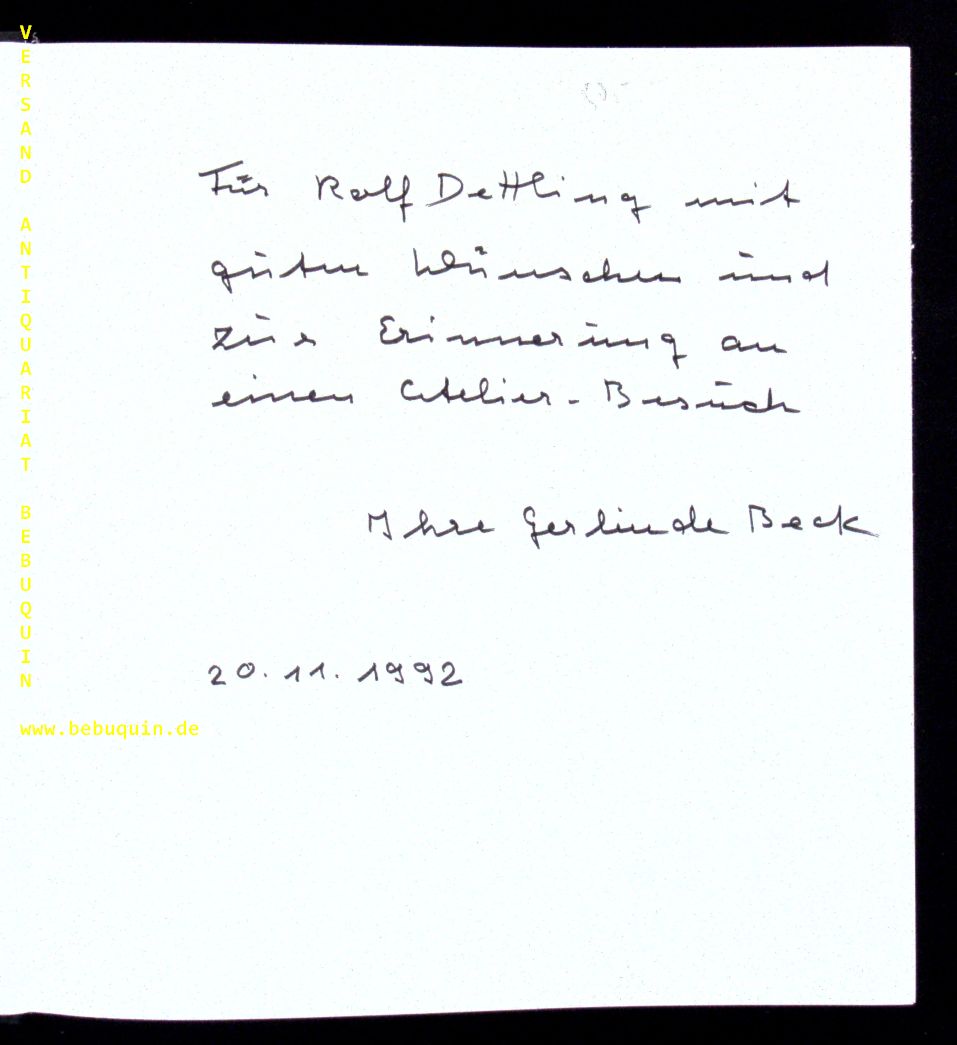 VERSAND ANTIQUARIAT BEBUQUIN
www.bebuquin.de
Für Rolf Dettling mit
guten Wünschen und
zur Erinnerung an
einen Atelier-Besuch
Ihre Gerlinde Beck
20.11.1992